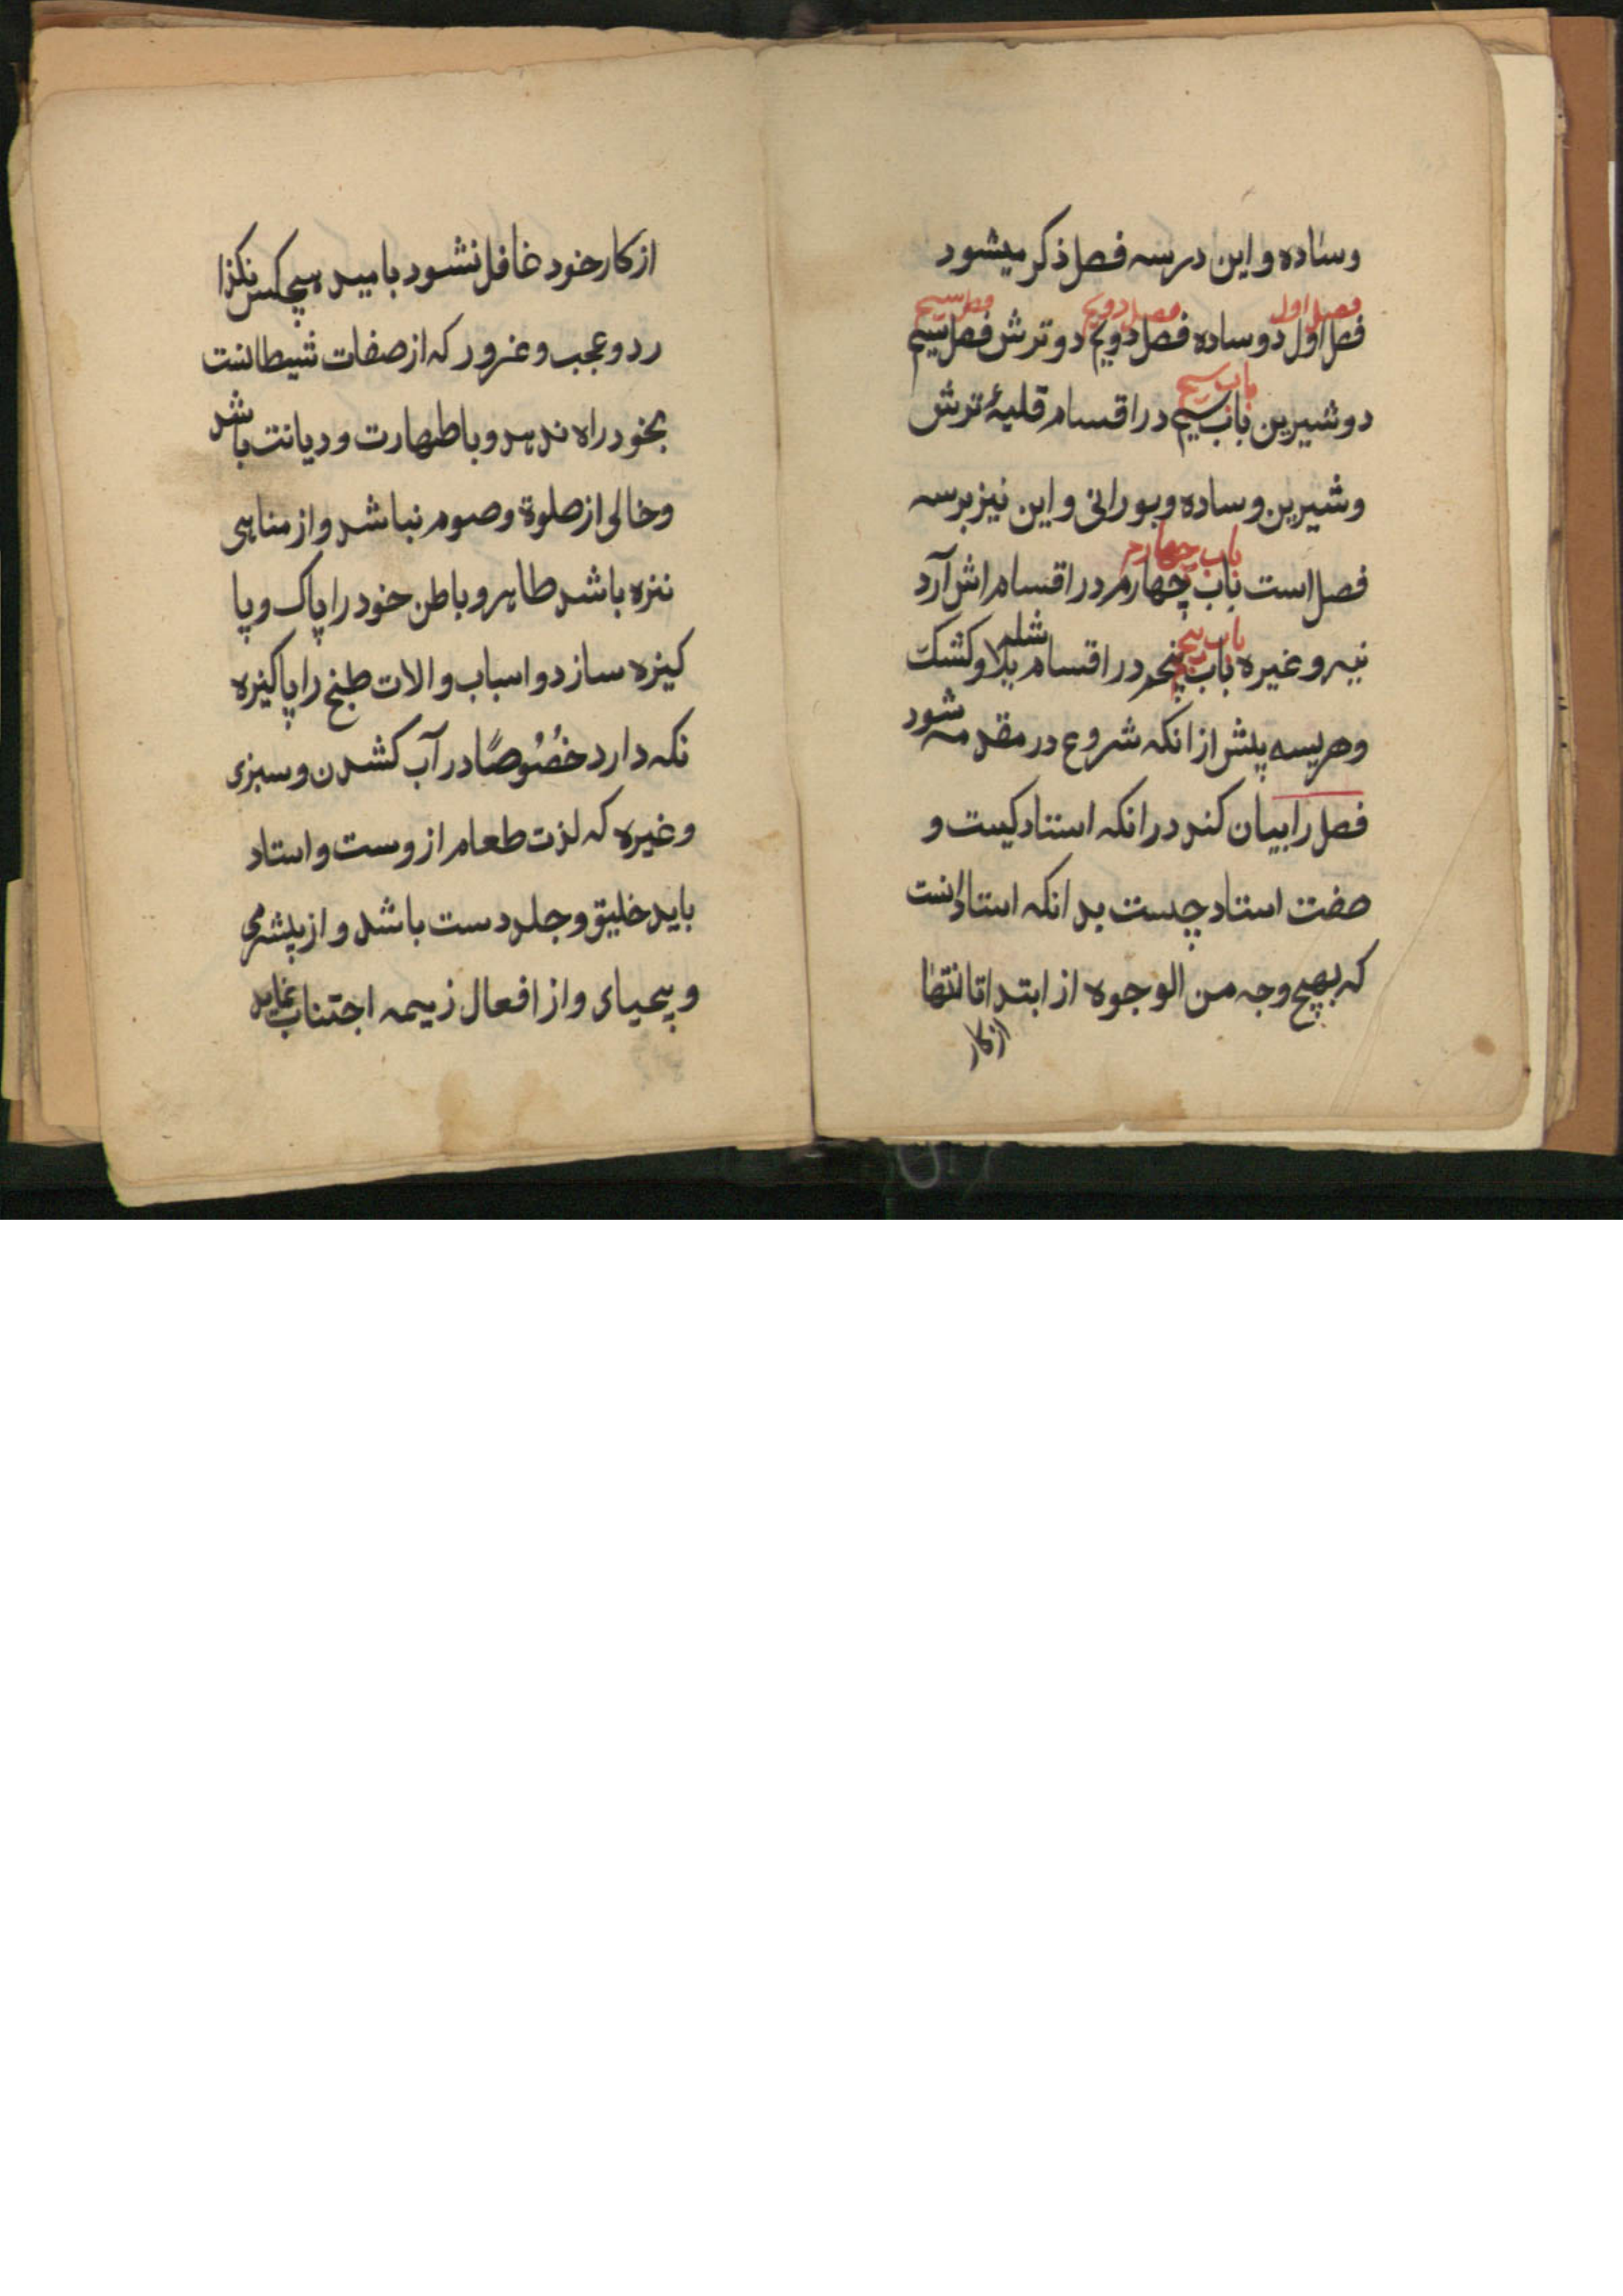 وساده و این در سه فصل ذکر میشود
فصل اول فصل دویم فصل سیم
فصل اول دو ساده فصل دویم دو ترش فصل سیم
باب سیم
دو شیرین باب سیم در اقسام قلیهٔ ترش
و شیرین و ساده و بورانی و این نیز بر سه
باب چهارم
فصل است باب چهارم در اقسام اش آرد
باب پنجم شله
نیه و غیره باب پنجم در اقسام پلاو کشک
وهریسه پیش از انکه شروع در مقدمه شود
فصل را بیان کند در انکه استاد کیست و
صفت استاد چیست بدانکه استاد انست
که بهیچ وجه من الوجوه از ابتدا تا انتها
از کار
از کار خود غافل نشود بامید هیچکس نکذا
رد و عجب و غرور که از صفات شیطانست
بخود راه ندهد و با طهارت و دیانت باشد
وخالی از صلوة و صوم نباشد و از مناهی
نزه باشد طاهر و باطن خود را پاک و پا
کیزه سازد و اسباب و الات طبخ را پاکیزه
نکه دارد خُصُوصًا در آب کشدن و سبزی
وغیره که لذت طعام از وست و استاد
باید خلیق و جلد دست باشد و از بیشرمی
و بیحیای و از افعال زیمه اجتناب نماید